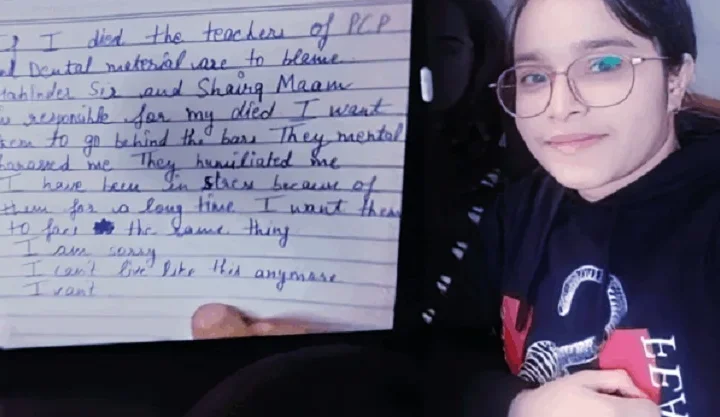 If I died the teachers of PCP
and Dental material are to blame.
Mahinder Sir and Shairg Maam
is responsible for my died I want
them to go behind the bars They mental
harassed me They humiliated me
I have been in stress because of
them for a long time I want them
to face the same thing
I am sorry
I can't live like this anymore
I want